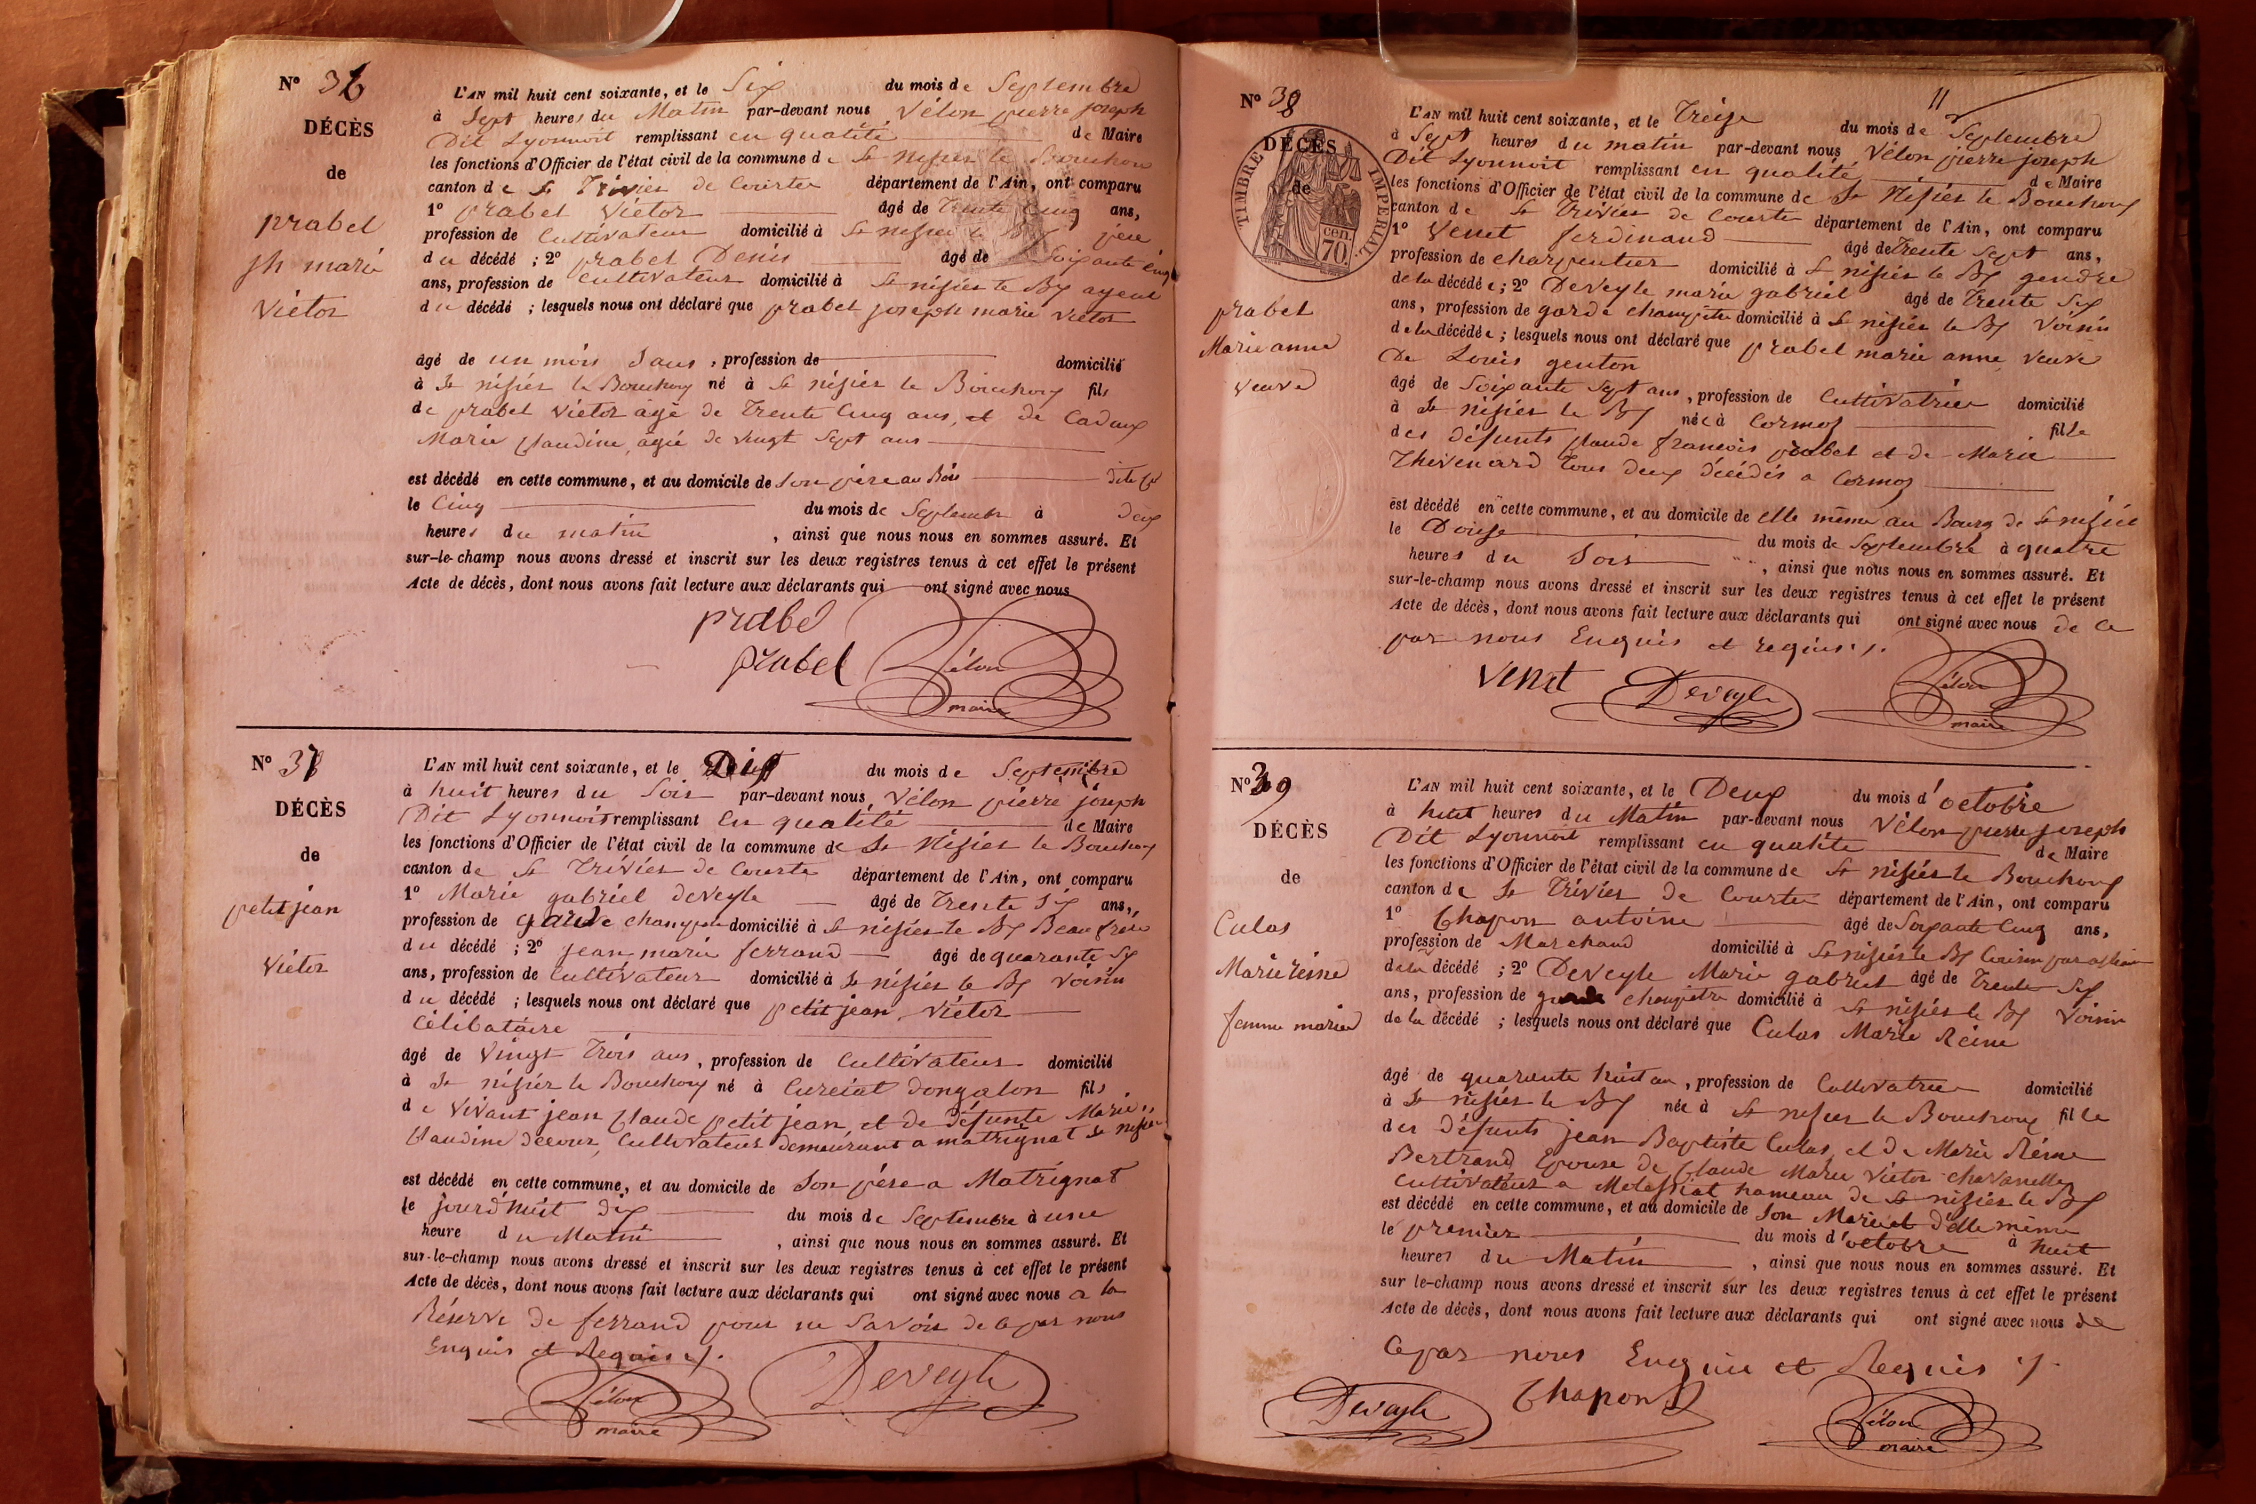 N° 36
DÉCÈS
de
prabel
jh marie
Victor
L'AN mil huit cent soixante, et le Six du mois de Septembre
à Sept heures du Matin par-devant nous Vélon pierre joseph
Dit Lyonnoit remplissant en qualité de Maire
les fonctions d'Officier de l'état civil de la commune de St Nisier le Bouchoux
canton de St Trivier de Courtes département de l'Ain, ont comparu
1° prabel Victor âgé de Trente Cinq ans,
profession de Cultivateur domicilié à St nisier le Bx père
du décédé ; 2° prabel Denis âgé de Soixante cinq
ans, profession de Cultivateur domicilié à St nisier le Bx ayeul
du décédé ; lesquels nous ont déclaré que prabel joseph marie Victor
âgé de un mois Sans , profession de domicilié
à St nisier le Bouchoux né à St nisier le Bouchoux fils
de prabel Victor agé de Trente Cinq ans, et de Cadoux
Marie Claudine, agée de vingt Sept ans
est décédé en cette commune, et au domicile de Son père au Bois
le Cinq du mois de Septembre à deux
heures du matin , ainsi que nous nous en sommes assuré. Et
sur-le-champ nous avons dressé et inscrit sur les deux registres tenus à cet effet le présent
Acte de décès, dont nous avons fait lecture aux déclarants qui ont signé avec nous
prabel
prabel Vélon
maire
N° 37
DÉCÈS
de
petitjean
Victor
L'AN mil huit cent soixante, et le Dix du mois de Septembre
à huit heures du Soir par-devant nous Vélon pierre joseph
Dit Lyonnoit remplissant en qualité de Maire
les fonctions d'Officier de l'état civil de la commune de St Nisier le Bouchoux
canton de St Trivier de Courtes département de l'Ain, ont comparu
1° Marie gabriel deveyle âgé de Trente Six ans,
profession de garde champetre domicilié à St nisier le Bx Beau frère
du décédé ; 2° jean marie ferrand âgé de quarante Six
ans, profession de Cultivateur domicilié à St nisier le Bx Voisin
du décédé ; lesquels nous ont déclaré que petit jean Victor
Célibataire
âgé de vingt Trois ans , profession de Cultivateur domicilié
à St nisier le Bouchoux né à Curciat dongalon fils
de vivant jean Claude petit jean, et de défunte Marie
Claudine decour, Cultivateur demeurant a matrignat St nisier
est décédé en cette commune, et au domicile de Son père a Matrignat
le jourd'huit dix du mois de Septembre à une
heure du Matin , ainsi que nous nous en sommes assuré. Et
sur-le-champ nous avons dressé et inscrit sur les deux registres tenus à cet effet le présent
Acte de décès, dont nous avons fait lecture aux déclarants qui ont signé avec nous a la
Réserve de ferrand pour ne Savoir de ce par nous
Enquis et Requis
Vélon Deveyle
maire
11
N° 38
DÉCÈS
de
TIMBRE IMPÉRIAL
cen. 70.
prabel
Marie anne
veuve
L'AN mil huit cent soixante, et le Treize du mois de Septembre
à Sept heures du matin par-devant nous Vélon pierre joseph
Dit Lyonnoit remplissant en qualité de Maire
les fonctions d'Officier de l'état civil de la commune de St Nisier le Bouchoux
canton de St Trivier de Courtes département de l'Ain, ont comparu
1° Venet ferdinand âgé de Trente Sept ans,
profession de charpentier domicilié à St nisier le Bx gendre
de la décédée ; 2° Deveyle marie gabriel âgé de Trente Six
ans, profession de garde champetre domicilié à St nisier le Bx Voisin
de la décédée ; lesquels nous ont déclaré que prabel marie anne, veuve
De Louis genton
âgé de Soixante Sept ans , profession de Cultivatrice domicilié
à St nisier le Bx née à Cormoz fille
des défunts Claude francois prabel et de Marie
Thevenard Tous deux décédés a Cormoz
est décédé en cette commune, et au domicile de elle même au Bourg de St nisier
le Douze du mois de Septembre à quatre
heures du Soir , ainsi que nous nous en sommes assuré. Et
sur-le-champ nous avons dressé et inscrit sur les deux registres tenus à cet effet le présent
Acte de décès, dont nous avons fait lecture aux déclarants qui ont signé avec nous de ce
par nous Enquis et requis
Venet Deveyle Vélon
maire
N° 39
DÉCÈS
de
Culas
Marie reine
femme mariée
L'AN mil huit cent soixante, et le Deux du mois d'octobre
à huit heures du Matin par-devant nous Vélon pierre joseph
Dit Lyonnoit remplissant en qualité de Maire
les fonctions d'Officier de l'état civil de la commune de St nisier le Bouchoux
canton de St Trivier de Courtes département de l'Ain, ont comparu
1° Chapon antoine âgé de Soixante Cinq ans,
profession de Marchand domicilié à St nisier le Bx Cousin par alliance
de la décédé ; 2° Deveyle Marie gabriel âgé de Trente Six
ans, profession de garde champetre domicilié à St nisier le Bx Voisin
de la décédé ; lesquels nous ont déclaré que Culas Marie Reine
âgé de quarente huit an , profession de Cultivatrice domicilié
à St nisier le Bx née à St nisier le Bouchoux fille
des défunts jean Baptiste Culas, et de Marie Reine
Bertrand Epouse de Claude Marie Victor chavanelle
Cultivateur a Molassiat hameau de St nisier le Bx
est décédé en cette commune, et au domicile de Son Mari et d'elle même
le premier du mois d'octobre à huit
heures du Matin , ainsi que nous nous en sommes assuré. Et
sur le-champ nous avons dressé et inscrit sur les deux registres tenus à cet effet le présent
Acte de décès, dont nous avons fait lecture aux déclarants qui ont signé avec nous de
Ce par nous Enquis et Requis
Deveyle Chapon Vélon
maire